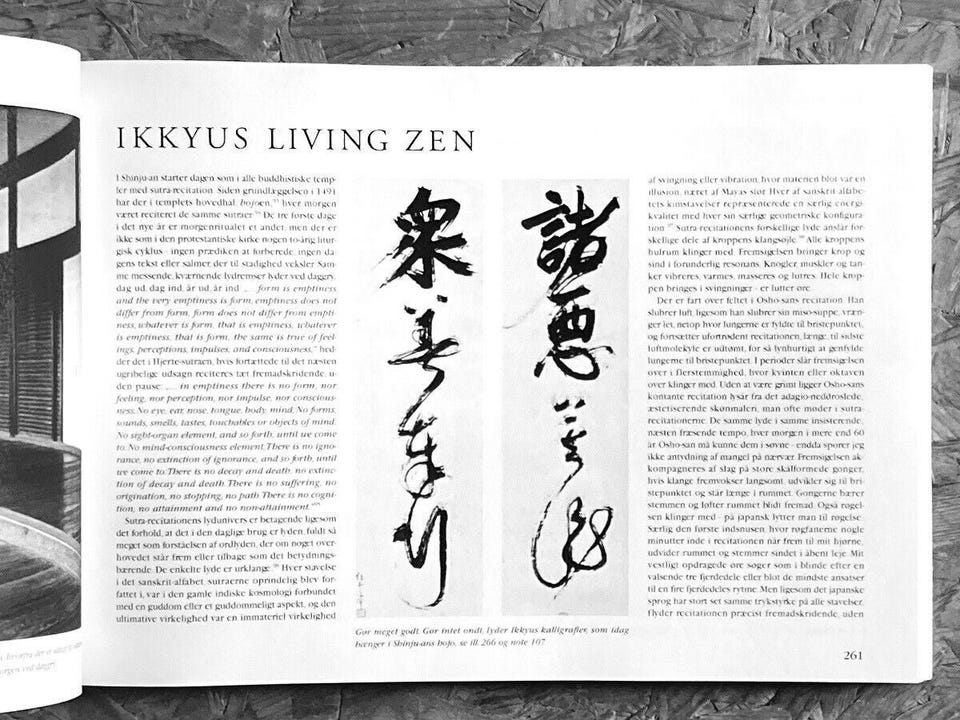 IKKYUS LIVING ZEN
I Shinju-an starter dagen som i alle buddhistiske temp-
ler med sutra-recitation. Siden grundlæggelsen i 1491
har der i templets hovedhal, hojoen, hver morgen
været reciteret de samme sutraer. De tre første dage
i det nye år er morgenritualet et andet, men der er
ikke som i den protestantiske kirke nogen to-årig litur-
gisk cyklus - ingen prædiken at forberede, ingen da-
gens tekst eller salmer, der til stadighed veksler. Sam-
me messende, kværnende lydremser lyder ved daggry,
dag ud, dag ind, år ud, år ind „... form is emptiness
and the very emptiness is form, emptiness does not
differ from form, form does not differ from empti-
ness, whatever is form, that is emptiness, whatever
is emptiness, that is form, the same is true of feel-
ings, perceptions, impulses, and consciousness," hed-
der det i Hjerte-sutraen, hvis fortættede til det næsten
ugribelige udsagn reciteres tæt fremadskridende, u-
den pause: „... in emptiness there is no form, nor
feeling, nor perception, nor impulse, nor conscious-
ness. No eye, ear, nose, tongue, body, mind. No forms,
sounds, smells, tastes, touchables or objects of mind.
No sight-organ element, and so forth, until we come
to: No mind-consciousness element. There is no igno-
rance, no extinction of ignorance, and so forth, until
we come to: There is no decay and death, no extinc-
tion of decay and death. There is no suffering, no
origination, no stopping, no path. There is no cogni-
tion, no attainment and no non-attainment."
Sutra-recitationens lydunivers er betagende ligesom
det forhold, at det i den daglige brug er lyden, fuldt så
meget som forståelsen af ordlyden, der om noget over-
hovedet står frem eller tilbage som det betydnings-
bærende. De enkelte lyde er urklange. Hver stavelse
i det sanskrit-alfabet, sutraerne oprindelig blev for-
fattet i, var i den gamle indiske kosmologi forbundet
med en guddom eller et guddommeligt aspekt, og den
ultimative virkelighed var en immateriel virkelighed
衆善奉行
諸悪莫作
Gør meget godt. Gør intet ondt, lyder Ikkyus kalligrafier, som idag
hænger i Shinju-ans hojo, se ill. 266 og note 107
af svingning eller vibration, hvor materien blot var en
illusion, næret af Mayas slør. Hver af sanskrit-alfabe-
tets kimstavelser repræsenterede en særlig energi-
kvalitet med hver sin særlige geometriske konfigura-
tion. Sutra-recitationens forskellige lyde anslår for-
skellige dele af kroppens klangsøjle. Alle kroppens
hulrum klinger med. Fremsigelsen bringer krop og
sind i forunderlig resonans. Knogler, muskler og tan-
ker vibreres, varmes, masseres og lutres. Hele krop-
pen bringes i svingninger - er lutter øre.
Der er fart over feltet i Osho-sans recitation. Han
slubrer luft, ligesom han slubrer sin miso-suppe, vræn-
ger let, netop hvor lungerne er fyldte til bristepunktet,
og fortsætter ufortrødent recitationen, længe, til sidste
luftmolekyle er udtømt, for så lynhurtigt at genfylde
lungerne til bristepunktet. I perioder slår fremsigelsen
over i flerstemmighed, hvor kvinten eller oktaven
over klinger med. Uden at være grimt ligger Osho-sans
kontante recitation lysår fra det adagio-neddroslede,
æstetiserende skønmaleri, man ofte møder i sutra-
recitationerne. De samme lyde i samme insisterende,
næsten fræsende tempo, hver morgen i mere end 60
år. Osho-san må kunne dem i søvne - endda sporer jeg
ikke antydning af mangel på nærvær. Fremsigelsen ak-
kompagneres af slag på store skålformede gonger,
hvis klange fremvokser langsomt, udvikler sig til bri-
stepunktet og står længe i rummet. Gongerne bærer
stemmen og løfter rummet blidt fremad. Også røgel-
sen klinger med - på japansk lytter man til røgelse.
Særlig den første indsnusen, hvor røgfanerne nogle
minutter inde i recitationen når frem til mit hjørne,
udvider rummet og stemmer sindet i åbent leje. Mit
vestligt opdragede øre søger som i blinde efter en
valsende tre fjerdedele eller blot de mindste ansatser
til en fire fjerdedeles rytme. Men ligesom det japanske
sprog har stort set samme trykstyrke på alle stavelser,
flyder recitationen præcist fremadskridende, uden
261